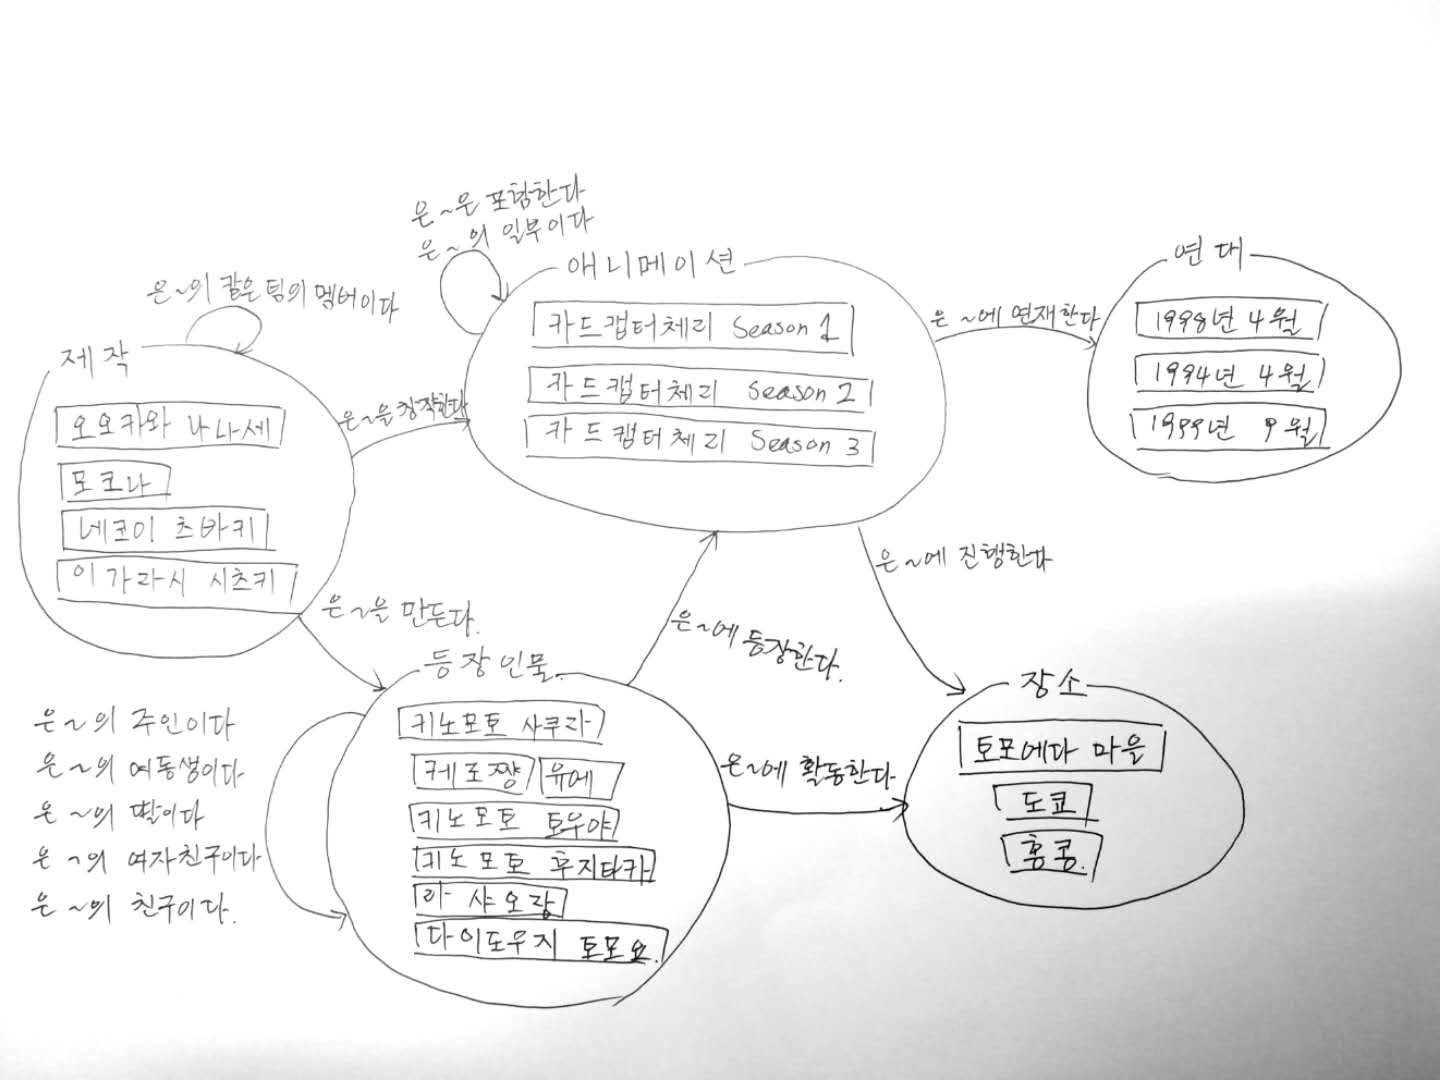 은 ~은 포함한다
은 ~의 일부이다
애니메이션
카드캡터체리 Season 1
카드캡터체리 Season 2
카드캡터체리 Season 3
연대
1998년 4월
1994년 4월
1999년 9월
은 ~에 연재한다
은 ~의 같은 팀의 멤버이다
제작
오오카와 나나세
모코나
네코이 츠바키
이가라시 시츠키
은 ~을 창작한다
은 ~을 만든다.
은 ~에 등장한다.
은 ~에 진행한다
등장인물
키노모토 사쿠라
케로짱
유에
키노모토 토우야
키노모토 후지타카
샤오랑
다이도우지 토모요.
은 ~의 주인이다
은 ~의 여동생이다
은 ~의 딸이다
은 ~의 여자친구이다
은 ~의 친구이다.
은 ~에 활동한다
장소
토모에다 마을
도쿄
홍콩.